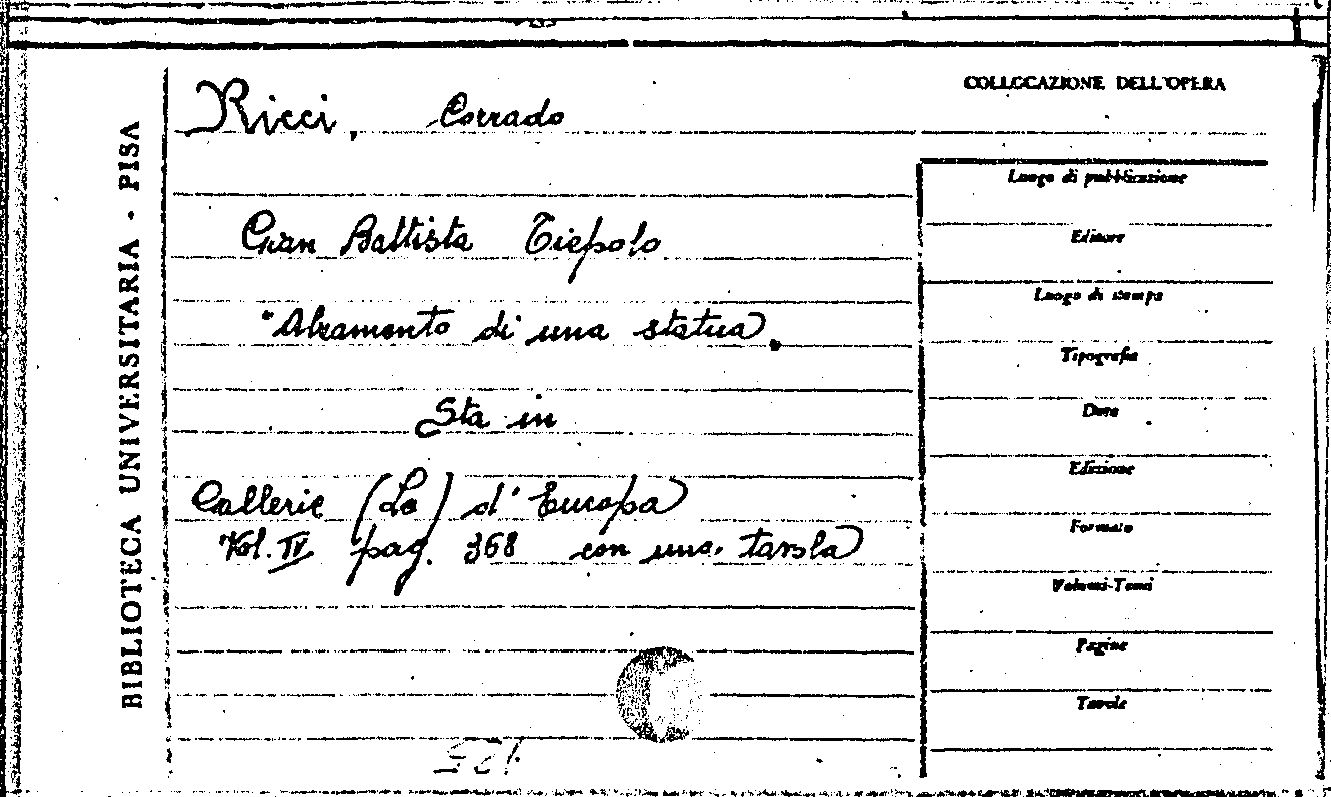 BIBLIOTECA UNIVERSITARIA - PISA
COLLOCAZIONE DELL'OPERA
Ricci, Corrado
Gian Battista Tiepolo
"Alzamento di una statua.
Sta in
Gallerie (Le) d'Europa
Vol. IV pag. 368 con una tavola
Luogo di pubblicazione
Editore
Luogo di stampa
Tipografia
Data
Edizione
Formato
Volumi-Tomi
Pagine
Tavole